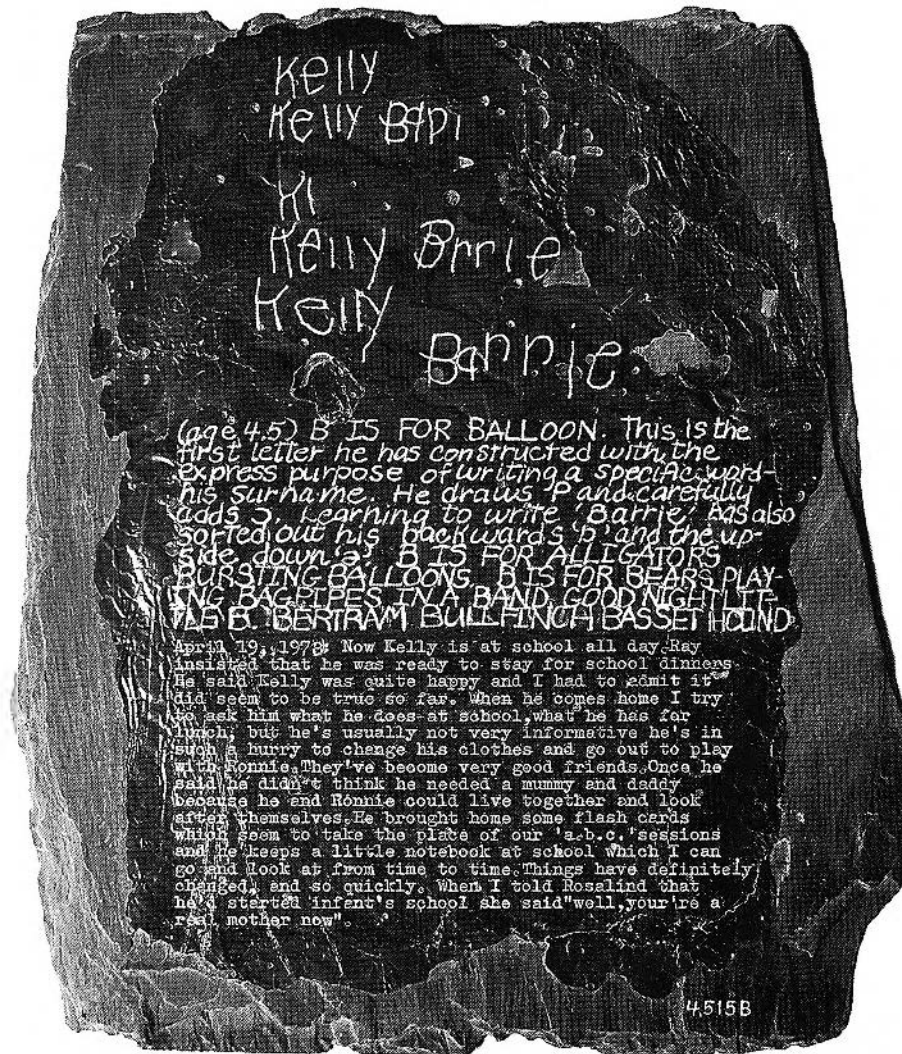 Kelly
Kelly Bapi
Kl
Kelly Brrie
Kelly
Barrie
(age 4.5) B IS FOR BALLOON. This is the
first letter he has constructed with the
express purpose of writing a specific word-
his surname. He draws P and carefully
adds ɔ. Learning to write 'Barrie' has also
sorted out his backwards 'b' and the up-
side down 'a'. B IS FOR ALLIGATORS
BURSTING BALLOONS. B IS FOR BEARS PLAY-
ING BAGPIPES IN A BAND. GOOD NIGHT LIT
TLE B. BERTRAM BULLFINCH BASSET HOUND.
April 19, 1978. Now Kelly is at school all day. Ray
insisted that he was ready to stay for school dinners.
He said Kelly was quite happy and I had to admit it
did seem to be true so far. When he comes home I try
to ask him what he does at school, what he has for
lunch, but he's usually not very informative he's in
such a hurry to change his clothes and go out to play
with Ronnie. They've become very good friends. Once he
said he didn't think he needed a mummy and daddy
because he and Ronnie could live together and look
after themselves. He brought home some flash cards
which seem to take the place of our 'a.b.c.' sessions
and he keeps a little notebook at school which I can
go and look at from time to time. Things have definitely
changed, and so quickly. When I told Rosalind that
he'd started infant's school she said "well, your're a
real mother now".
4.515B